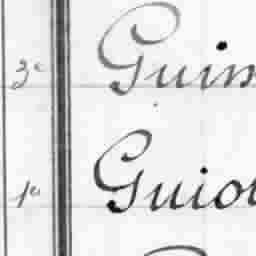 3e Guim
1a Guiot